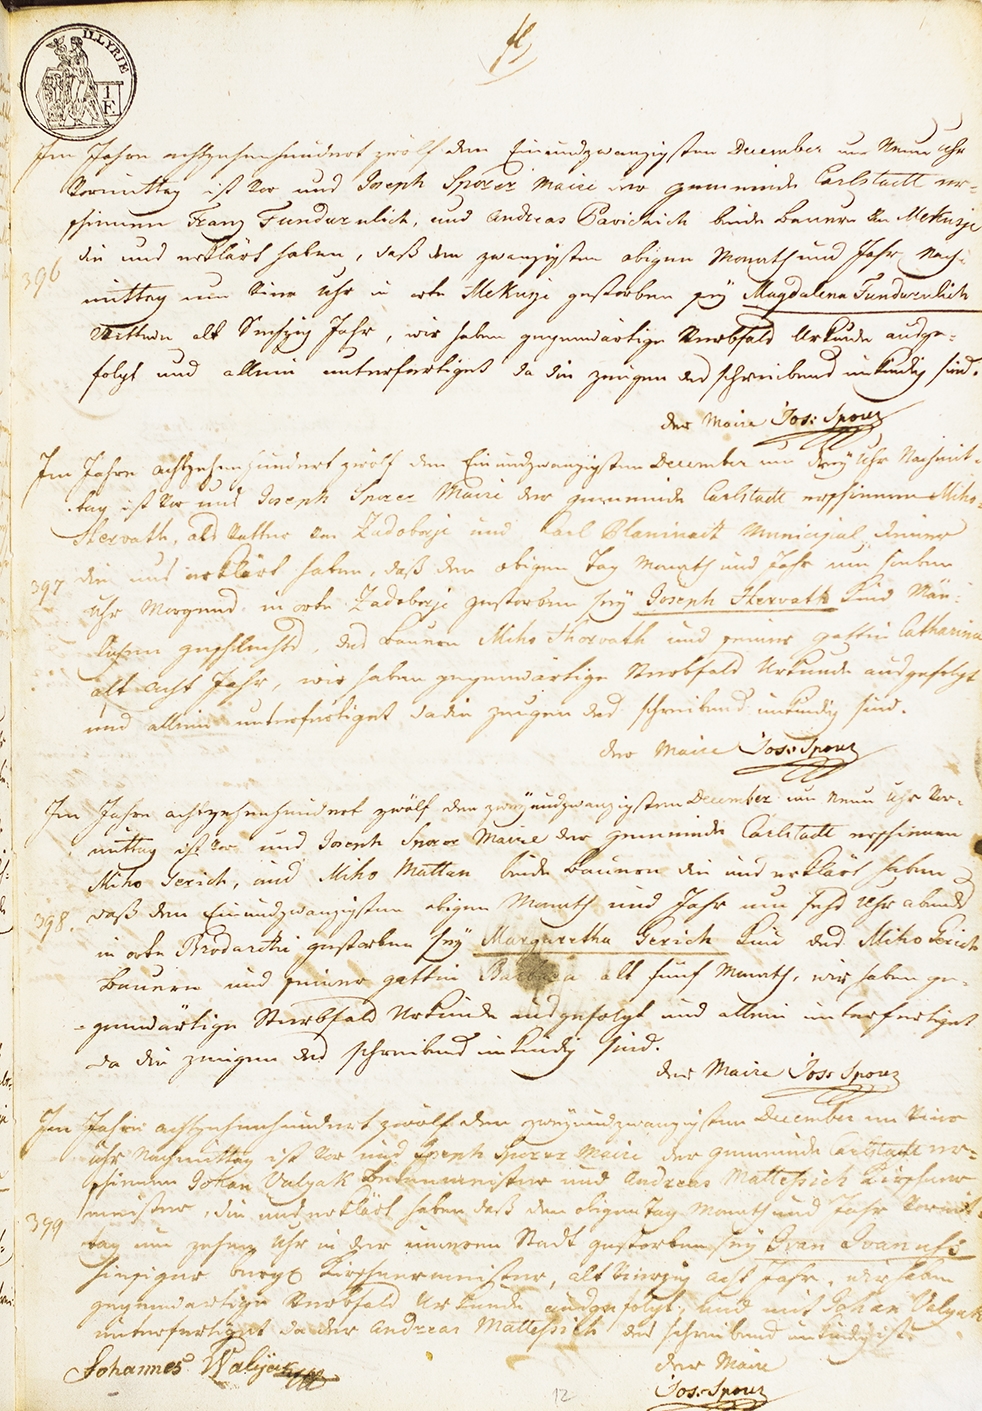 ILLYRIE
1 F.
Im Jahre achtzehenhundert zwölf den Einundzwanzigsten December um Neun Uhr
Vormittag ist vor uns Joseph Sporer Maire der gemeinde Carlstadt er-
schienen Franz Fundurulich, und Andreas Pavichich beide Bauern von Mekusje
396
die uns erklärt haben, daß den zwanzigsten obigen Monath und Jahr Nach-
mittag um Uhr in orte Mekusje gestorben sey Magdalena Fundurulich
Wittwe alt Sechzig Jahr, wir haben gegenwärtige Sterbfalls Urkunde ausge-
folgt und allein unterfertiget da die zeugen des schreibens unkundig sind.
der Maire Jos: Sporer
Im Jahre achtzehenhundert zwölf den Einundzwanzigsten December um drey Uhr Nachmit-
tag ist vor uns Joseph Sporer Maire der gemeinde Carlstadt erschienen Miho
Horvath, als Vatter von Zadobarje und Karl Municipal diener
397
die uns erklärt haben, daß den obigen Tag Monath und Jahr um sieben
Uhr Morgens in orte Zadobarje gestorben sey Joseph Horvath Kind Män-
lichen geschlechts, des Bauern Miho Horvath und seiner gattin Catharina
alt acht Jahr, wir haben gegenwärtige Sterbfalls Urkunde ausgefolgt
und allein unterfertiget da die zeugen des schreibens unkundig sind.
der Maire Jos: Sporer
Im Jahre achtzehenhundert zwölf den zweyundzwanzigsten December um Neun Uhr Vor-
mittag ist vor uns Joseph Sporer Maire der gemeinde Carlstadt erschienen
Miho Gerich, und Miho Mattan beide Bauern die uns erklärt haben
398.
daß den Einundzwanzigsten obigen Monath und Jahr um sechs Uhr abends
in orte Brodarczi gestorben sey Margaretha Gerich Kind des Miho Gerich
Bauern und seiner gattin Barbara alt fünf Monath, wir haben ge-
genwärtige Sterbfalls Urkunde ausgefolgt und allein unterfertiget
da die zeugen des schreibens unkundig sind.
der Maire Jos: Sporer
Im Jahre achtzehenhundert zwölf den zweyundzwanzigsten December um
Uhr Nachmittag ist vor uns Joseph Sporer Maire der gemeinde Carlstadt er-
schienen Johan Valyak und Andreas Mattessich Kirschner
399
meister, die uns erklärt haben daß den obigen Tag Monath und Jahr Vormit-
tag um zehen Uhr in der inneren Stadt gestorben sey Ivan
hiesiger Kirschnermeister, alt vierzig acht Jahr, wir haben
gegenwärtige Sterbfalls Urkunde ausgefolgt, und mit Johan Valyak
unterfertiget da der Andreas Mattessich des schreibens unkundig ist.
der Maire
Johannes Walyak
Jos: Sporer
12